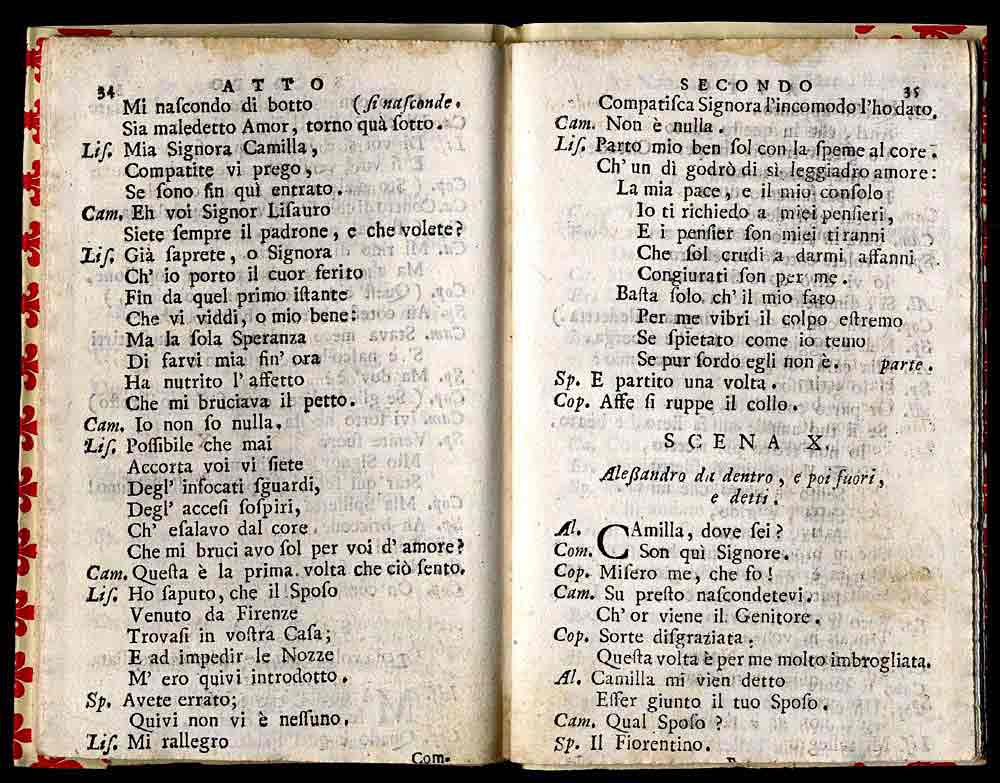 34 ATTO
Mi naſcondo di botto (ſi naſconde.
Sia maledetto Amor, torno quà ſotto.
Liſ. Mia Signora Camilla,
Compatite vi prego,
Se ſono fin quì entrato.
Cam. Eh voi Signor Liſauro
Siete ſempre il padrone, e che volete?
Liſ. Già ſaprete, o Signora
Ch' io porto il cuor ferito
Fin da quel primo iſtante
Che vi viddi, o mio bene:
Ma la ſola Speranza
Di farvi mia fin' ora
Ha nutrito l' affetto
Che mi bruciava il petto.
Cam. Io non ſo nulla.
Liſ. Poſſibile che mai
Accorta voi vi ſiete
Degl' infocati ſguardi,
Degl' acceſi ſoſpiri,
Ch' eſalavo dal core
Che mi bruci avo ſol per voi d' amore?
Cam. Queſta è la prima volta che ciò ſento.
Liſ. Ho ſaputo, che il Spoſo
Venuto da Firenze
Trovaſi in voſtra Caſa;
E ad impedir le Nozze
M' ero quivi introdotto.
Sp. Avete errato;
Quivi non vi è neſſuno.
Liſ. Mi rallegro
Com-
SECONDO 35
Compatiſca Signora l'incomodo l'ho dato.
Cam. Non è nulla.
Liſ. Parto mio ben ſol con la ſpeme al core.
Ch' un dì godrò di sì leggiadro amore:
La mia pace, e il mio conſolo
Io ti richiedo a miei penſieri,
E i penſier ſon miei tiranni
Che ſol crudi a darmi affanni
Congiurati ſon per me.
Baſta ſolo ch' il mio fato
Per me vibri il colpo eſtremo
Se ſpietato come io temo
Se pur ſordo egli non è. parte.
Sp. E partito una volta.
Cop. Affe ſi ruppe il collo.
SCENA X.
Aleßandro da dentro, e poi fuori,
e detti.
Al. CAmilla, dove ſei?
Com. Son quì Signore.
Cop. Miſero me, che fo!
Cam. Su preſto naſcondetevi.
Ch' or viene il Genitore.
Cop. Sorte diſgraziata.
Queſta volta è per me molto imbrogliata.
Al. Camilla mi vien detto
Eſſer giunto il tuo Spoſo.
Cam. Qual Spoſo?
Sp. Il Fiorentino.